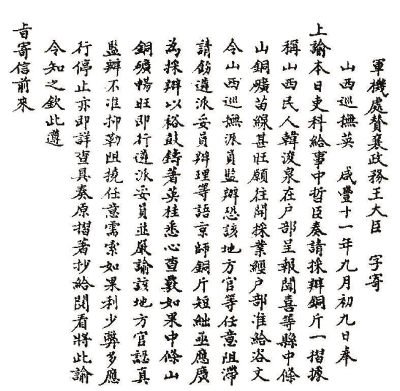 軍機處贊襄政務王大臣　字寄
山西巡撫英　咸豐十一年九月初九日奉
上諭本日吏科給事中哲臣奏請採辦銅斤一摺據
稱山西民人韓浚泉在戶部呈報聞喜等縣中條
山銅礦苗線甚旺願往開採業經戶部准給咨文
令山西巡撫派員監辦恐該地方官等任意阻滯
請飭遴派妥員辦理等語京師銅斤短絀亟應廣
為採辦以裕鼓鑄著英桂悉心查覈如果中條山
銅礦暢旺即行遴派妥員並嚴諭該地方官認真
監辦不准抑勒阻撓任意需索如果利少弊多應
行停止亦即詳查具奏原摺著抄給閱看將此諭
令知之欽此遵
旨寄信前來